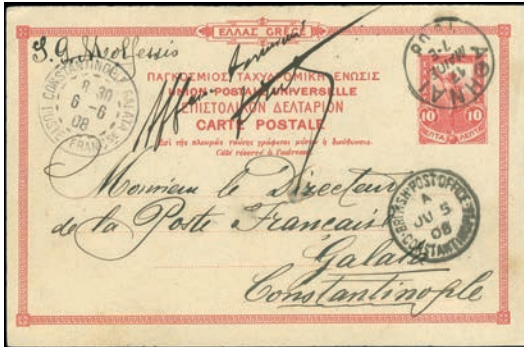 ΕΛΛΑΣ GRÈCE
ΠΑΓΚΟΣΜΙΟΣ ΤΑΧΥΔΡΟΜΙΚΗ ΕΝΩΣΙΣ
UNION POSTALE UNIVERSELLE
ΕΠΙΣΤΟΛΙΚΟΝ ΔΕΛΤΑΡΙΟΝ
CARTE POSTALE
Ἐπὶ τῆς πλευρᾶς ταύτης γράφεται μόνον ἡ διεύθυνσις.
Côté réservé à l'adresse.
ΑΘΗΝΑΙ
17
10 ΛΕΠΤΑ ΛΕΠΤΑ 10
CONSTANTINOPLE GALATA
8 30
6 - 6
08
BRITISH POST OFFICE
A
JU 5
08
CONSTANTINOPLE
Monsieur le Directeur
de la Poste Francaise
Galata
Constantinople